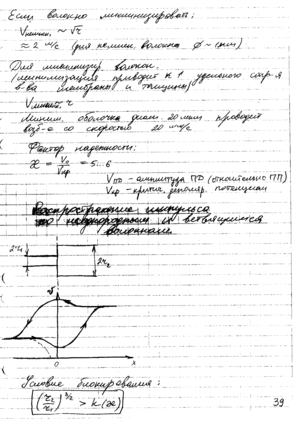 Если волокно миелинизировать:
Vмиелин. ~ √r
≈ 2 м/с (для немиелин. волокна ⌀ ~ 1мм)
Для миелинизир. волокон.
(миелинизация приводит к ↑ удельного сопр-я
в-ва мембраны и толщины)
Vмиелин. ~ r
Миелин. оболочка диам. 20 мкм проводит
возб-е со скоростью 20 м/с
Фактор надежности:
æ = V₀/Vкр = 5...6
V₀ - амплитуда ПД (относительно ПП)
Vкр - критич. деполяр. потенциал
Распространение импульса
по неоднородным и ветвящимся
волокнам.
2r₁
2r₂
v
0
x
Условие блокирования:
(r₂/r₁)^3/2 > k(æ)
39